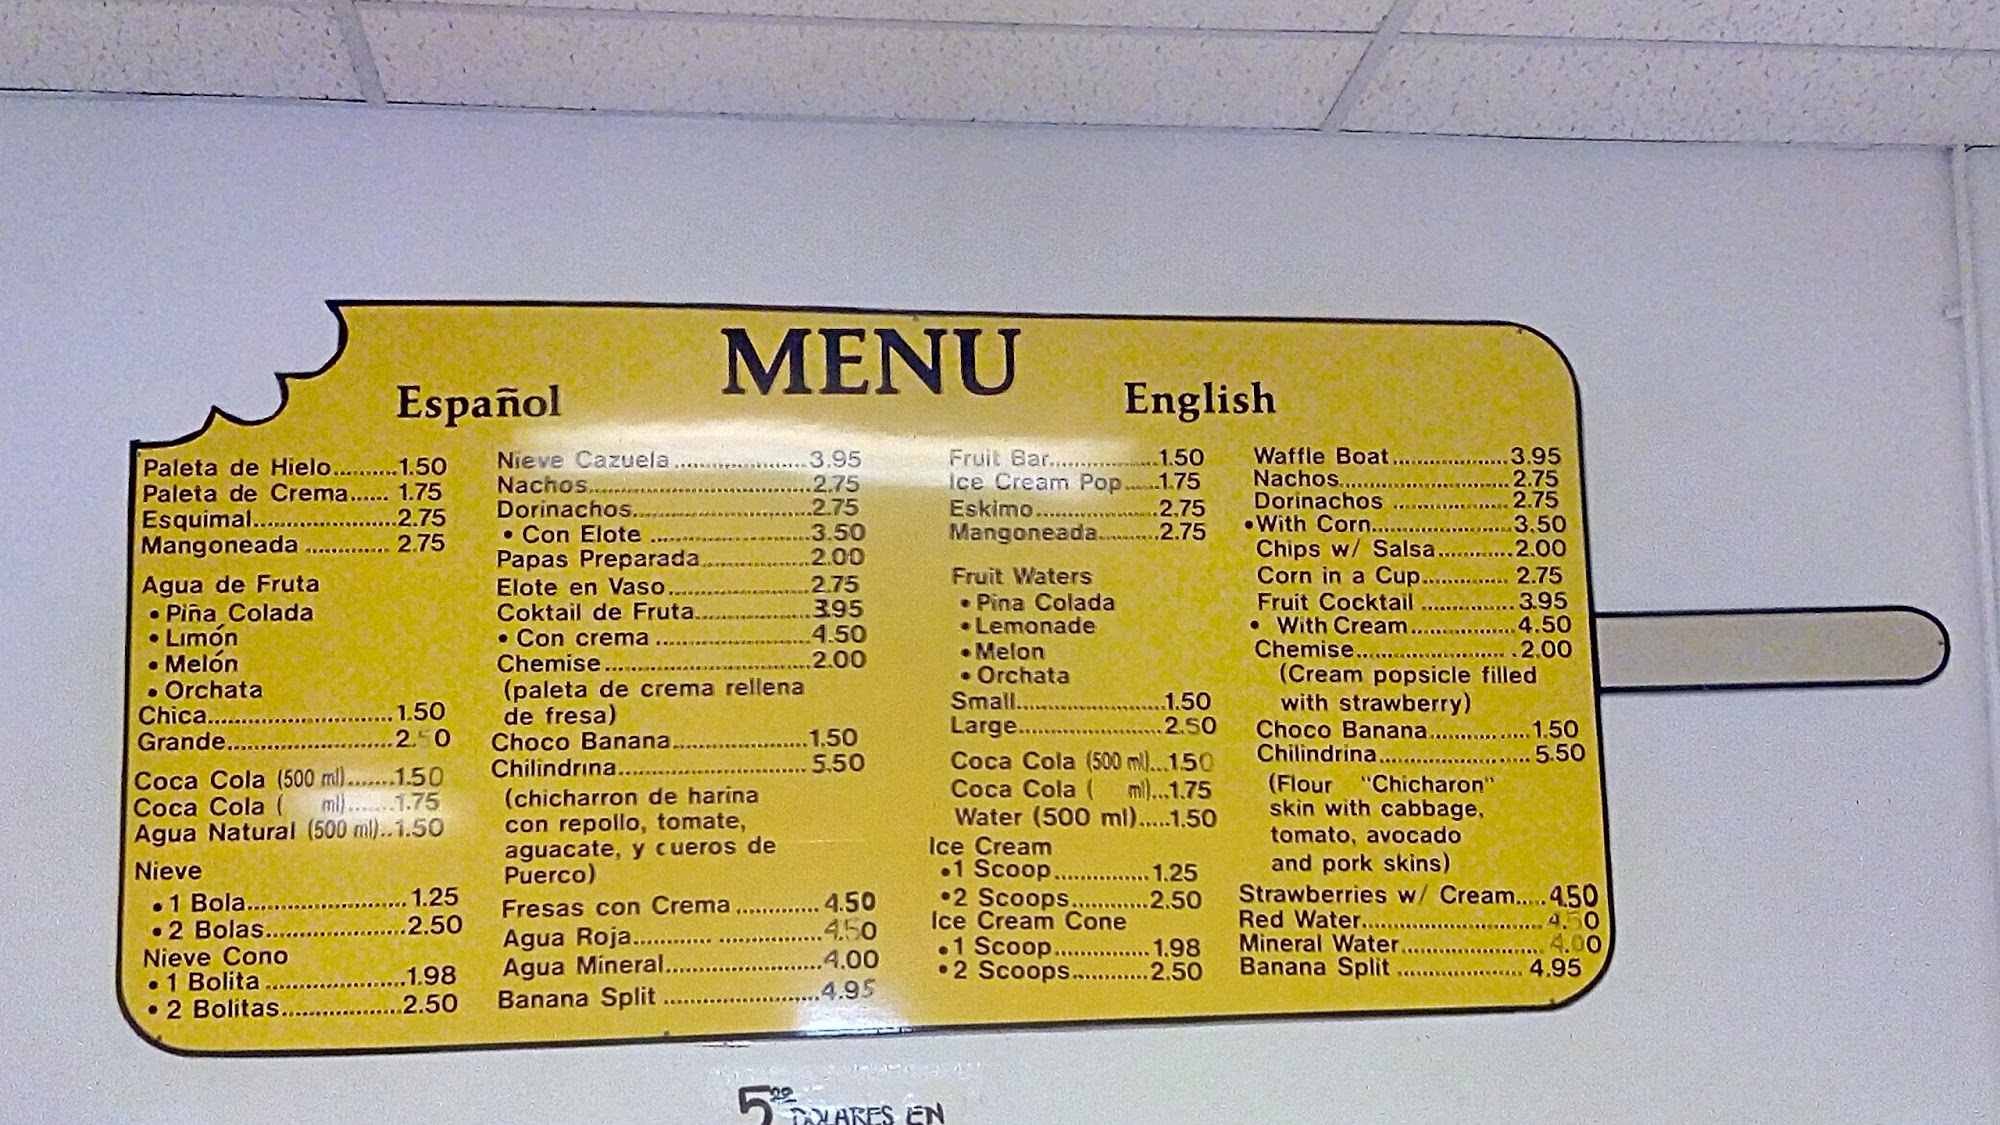 MENU
Español
Paleta de Hielo..........1.50
Paleta de Crema...... 1.75
Esquimal......................2.75
Mangoneada ............. 2.75
Agua de Fruta
• Piña Colada
• Limón
• Melón
• Orchata
Chica.............................1.50
Grande..........................2.50
Coca Cola (500 ml).......1.50
Coca Cola ( ml).......1.75
Agua Natural (500 ml)..1.50
Nieve
• 1 Bola.........................1.25
• 2 Bolas......................2.50
Nieve Cono
• 1 Bolita ......................1.98
• 2 Bolitas...................2.50
Nieve Cazuela ......................3.95
Nachos...................................2.75
Dorinachos............................2.75
• Con Elote .........................3.50
Papas Preparada..................2.00
Elote en Vaso.......................2.75
Coktail de Fruta...................3.95
• Con crema ........................4.50
Chemise................................2.00
(paleta de crema rellena
de fresa)
Choco Banana.....................1.50
Chilindrina.............................5.50
(chicharron de harina
con repollo, tomate,
aguacate, y cueros de
Puerco)
Fresas con Crema .............4.50
Agua Roja............ ................4.50
Agua Mineral.........................4.00
Banana Split .........................4.95
English
Fruit Bar..................1.50
Ice Cream Pop.....1.75
Eskimo....................2.75
Mangoneada..........2.75
Fruit Waters
• Pina Colada
• Lemonade
• Melon
• Orchata
Small........................1.50
Large........................2.50
Coca Cola (500 ml)...1.50
Coca Cola ( ml)...1.75
Water (500 ml).....1.50
Ice Cream
•1 Scoop...............1.25
•2 Scoops............2.50
Ice Cream Cone
•1 Scoop...............1.98
•2 Scoops............2.50
Waffle Boat..................3.95
Nachos...........................2.75
Dorinachos ..................2.75
•With Corn......................3.50
Chips w/ Salsa............2.00
Corn in a Cup.............. 2.75
Fruit Cocktail ...............3.95
• With Cream.................4.50
Chemise........................ .2.00
(Cream popsicle filled
with strawberry)
Choco Banana................1.50
Chilindrina........................5.50
(Flour "Chicharon"
skin with cabbage,
tomato, avocado
and pork skins)
Strawberries w/ Cream.....4.50
Red Water.............................4.50
Mineral Water.......................4.00
Banana Split .................... 4.95
5.00 DOLARES EN